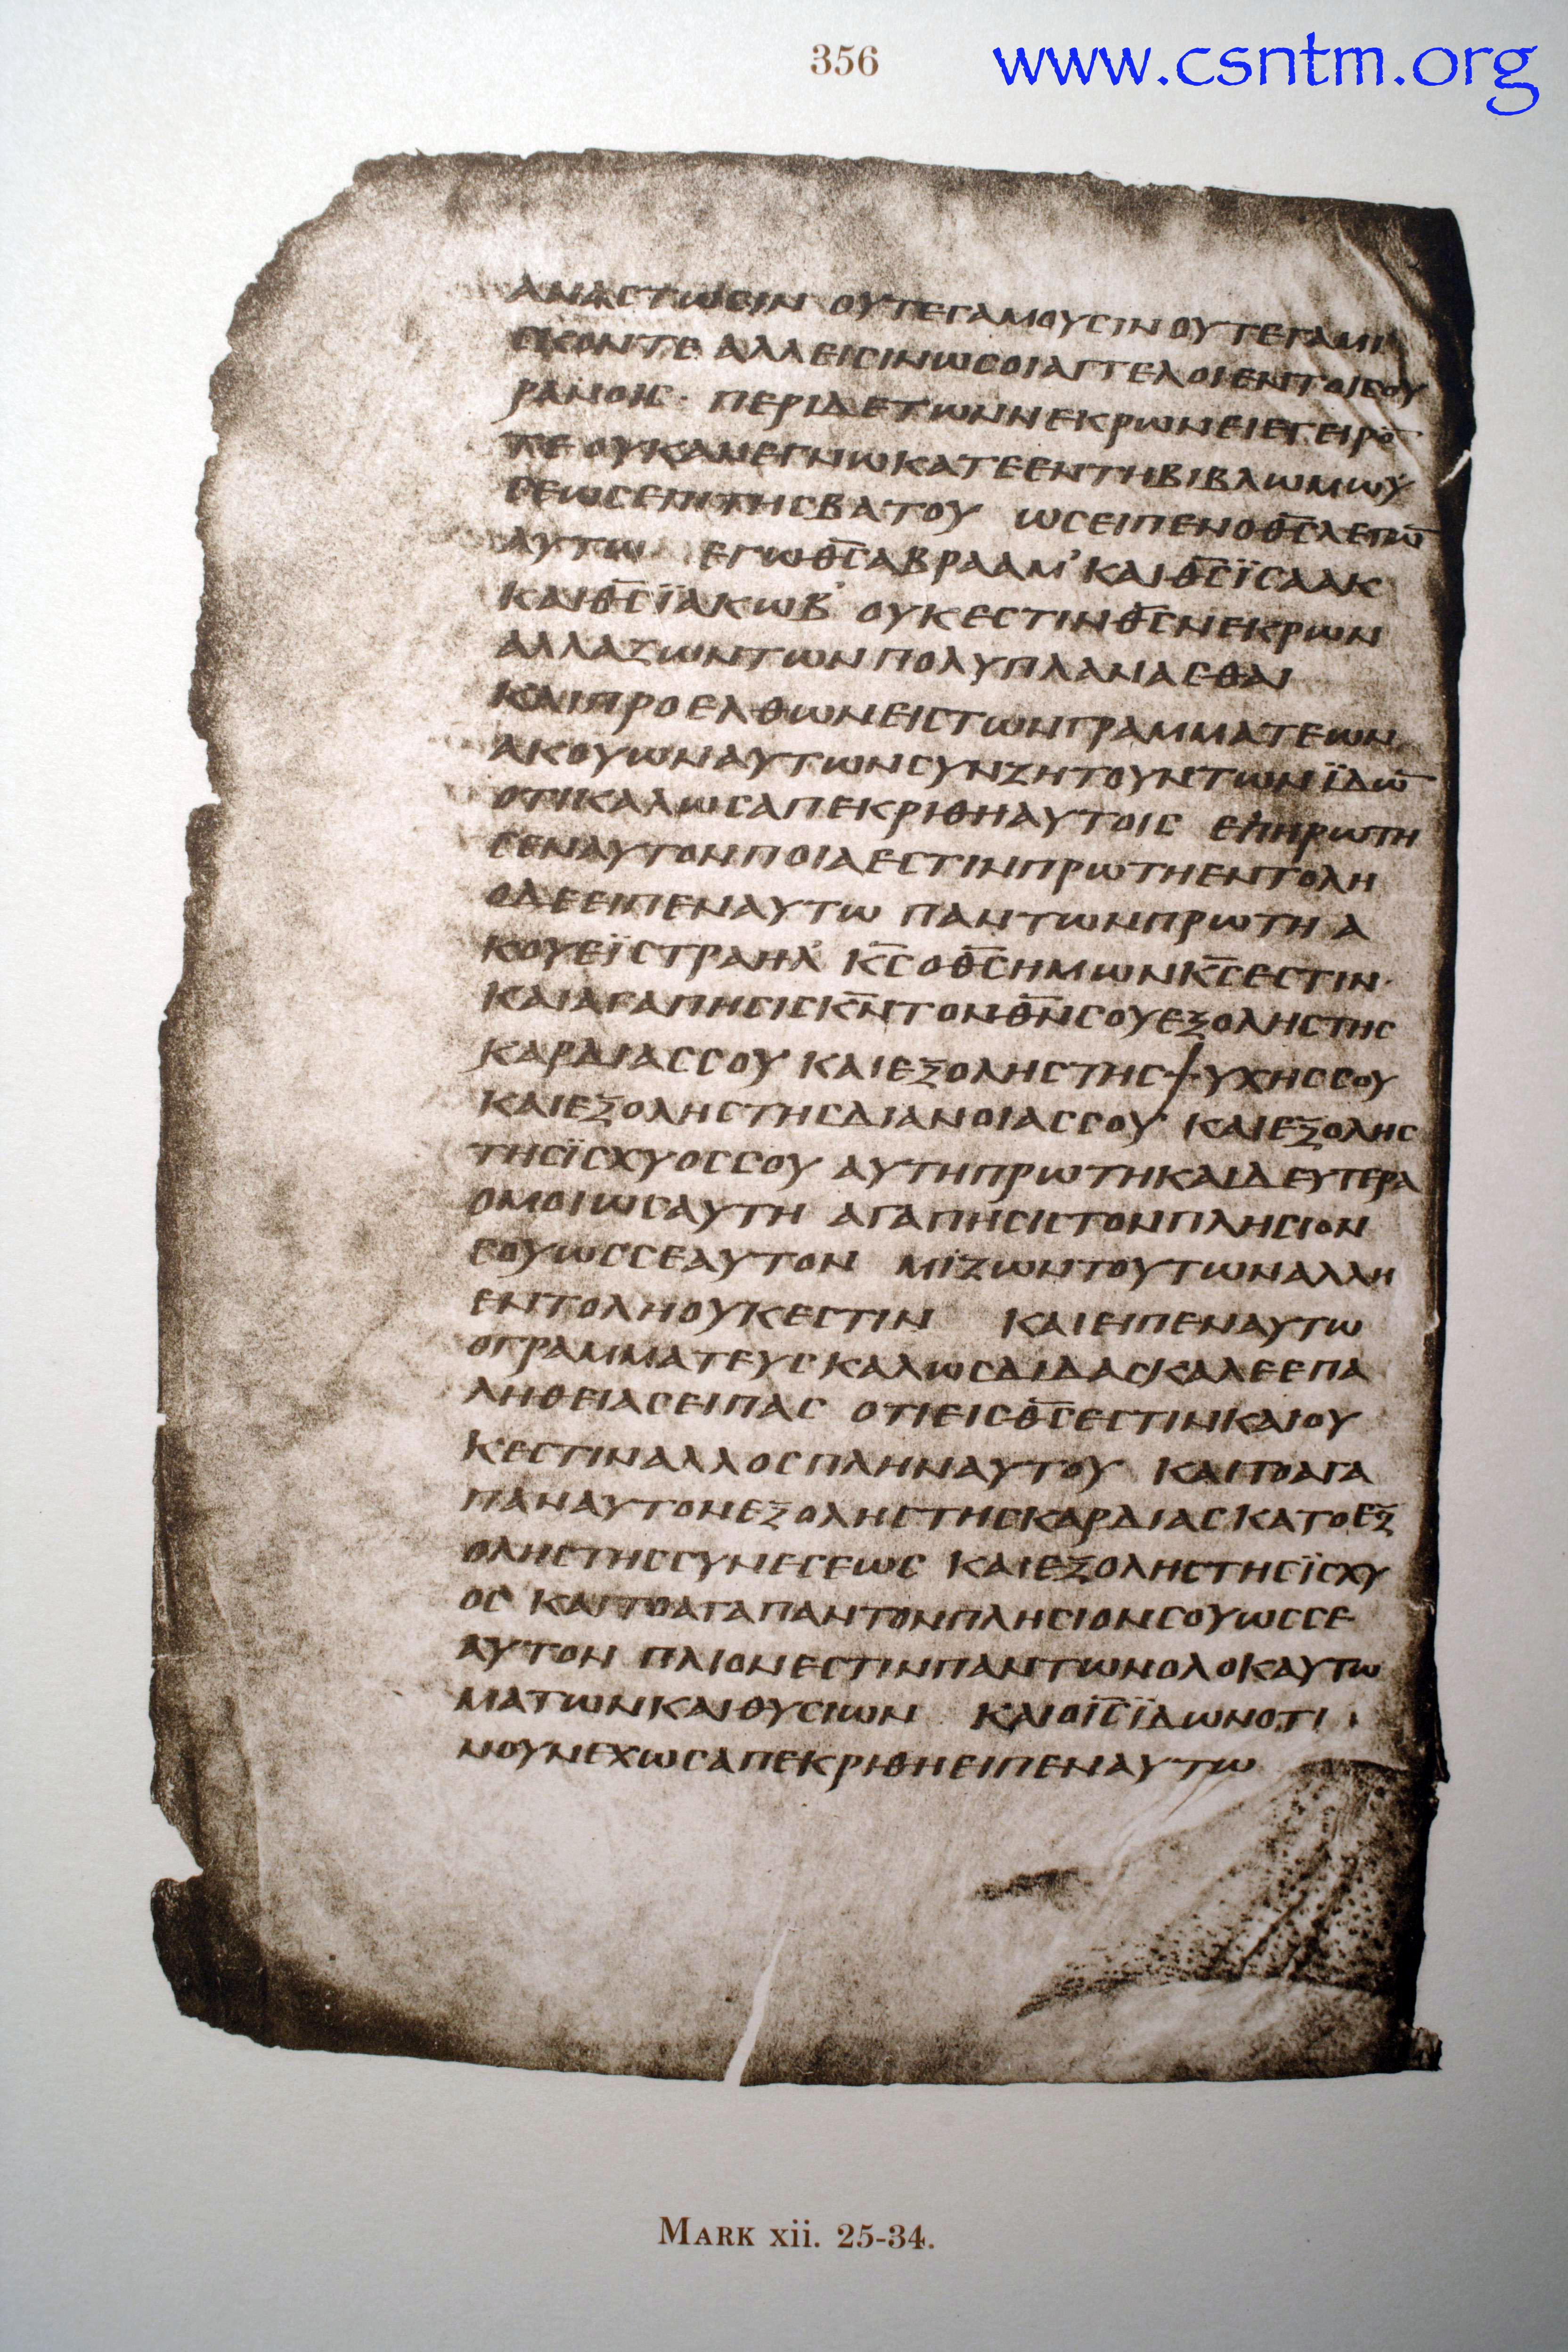 356
www.csntm.org
ΑΝΑϹΤΩϹΙΝ ΟΥΤΕΓΑΜΟΥϹΙΝΟΥΤΕΓΑΜΙ
ϹΚΟΝΤΕ ΑΛΛΕΙϹΙΝΩϹΟΙΑΓΓΕΛΟΙΕΝΤΟΙϹΟΥ
ΡΑΝΟΙϹ· ΠΕΡΙΔΕΤΩΝΝΕΚΡΩΝΕΙΕΓΕΙΡΟ̅
ΤΕ ΟΥΚΑΝΕΓΝΩΚΑΤΕΕΝΤΗΒΙΒΛΩΜΩΥ
ϹΕΩϹΕΠΙΤΗϹΒΑΤΟΥ ΩϹΕΙΠΕΝΟΘ̅Ϲ̅ΛΕΓΩ̅
ΑΥΤΩ ΕΓΩΘ̅Ϲ̅ΑΒΡΑΑΜ᾽ ΚΑΙΘ̅Ϲ̅ΪϹΑΑΚ
ΚΑΙΘ̅Ϲ̅ΪΑΚΩΒ᾽ ΟΥΚΕϹΤΙΝΘ̅Ϲ̅ΝΕΚΡΩΝ
ΑΛΛΑΖΩΝΤΩΝΠΟΛΥΠΛΑΝΑϹΘΑΙ
ΚΑΙΠΡΟΕΛΘΩΝΕΙϹΤΩΝΓΡΑΜΜΑΤΕΩΝ
ΑΚΟΥΩΝΑΥΤΩΝϹΥΝΖΗΤΟΥΝΤΩΝΪΔΩ̅
ΟΤΙΚΑΛΩϹΑΠΕΚΡΙΘΗΑΥΤΟΙϹ ΕΠΗΡΩΤΗ
ϹΕΝΑΥΤΟΝΠΟΙΑΕϹΤΙΝΠΡΩΤΗΕΝΤΟΛΗ
ΟΔΕΕΙΠΕΝΑΥΤΩ ΠΑΝΤΩΝΠΡΩΤΗ Α
ΚΟΥΕΪϹΤΡΑΗΛ᾽ Κ̅Ϲ̅ΟΘ̅Ϲ̅ΗΜΩΝΚ̅Ϲ̅ΕϹΤΙΝ·
ΚΑΙΑΓΑΠΗϹΙϹΚ̅Ν̅ΤΟΝΘ̅Ν̅ϹΟΥΕΞΟΛΗϹΤΗϹ
ΚΑΡΔΙΑϹϹΟΥ ΚΑΙΕΞΟΛΗϹΤΗϹΨΥΧΗϹϹΟΥ
ΚΑΙΕΞΟΛΗϹΤΗϹΔΙΑΝΟΙΑϹϹΟΥ ΚΑΙΕΞΟΛΗϹ
ΤΗϹΪϹΧΥΟϹϹΟΥ ΑΥΤΗΠΡΩΤΗΚΑΙΔΕΥΤΕΡΑ
ΟΜΟΙΩϹΑΥΤΗ ΑΓΑΠΗϹΙϹΤΟΝΠΛΗϹΙΟΝ
ϹΟΥΩϹϹΕΑΥΤΟΝ ΜΙΖΩΝΤΟΥΤΩΝΑΛΛΗ
ΕΝΤΟΛΗΟΥΚΕϹΤΙΝ ΚΑΙΕΙΠΕΝΑΥΤΩ
ΟΓΡΑΜΜΑΤΕΥϹΚΑΛΩϹΔΙΔΑϹΚΑΛΕΕΠΑ
ΛΗΘΕΙΑϹΕΙΠΑϹ ΟΤΙΕΙϹΘ̅Ϲ̅ΕϹΤΙΝΚΑΙΟΥ
ΚΕϹΤΙΝΑΛΛΟϹΠΛΗΝΑΥΤΟΥ ΚΑΙΤΟΑΓΑ
ΠΑΝΑΥΤΟΝΕΞΟΛΗϹΤΗϹΚΑΡΔΙΑϹΚΑΤΟΕΞ
ΟΛΗϹΤΗϹϹΥΝΕϹΕΩϹ ΚΑΙΕΞΟΛΗϹΤΗϹΪϹΧΥ
ΟϹ ΚΑΙΤΟΑΓΑΠΑΝΤΟΝΠΛΗϹΙΟΝϹΟΥΩϹϹΕ
ΑΥΤΟΝ ΠΛΙΟΝΕϹΤΙΝΠΑΝΤΩΝΟΛΟΚΑΥΤΩ
ΜΑΤΩΝΚΑΙΘΥϹΙΩΝ ΚΑΙΟΙ̅Ϲ̅ΪΔΩΝΟΤΙ
ΝΟΥΝΕΧΩϹΑΠΕΚΡΙΘΗΕΙΠΕΝΑΥΤΩ
MARK xii. 25-34.